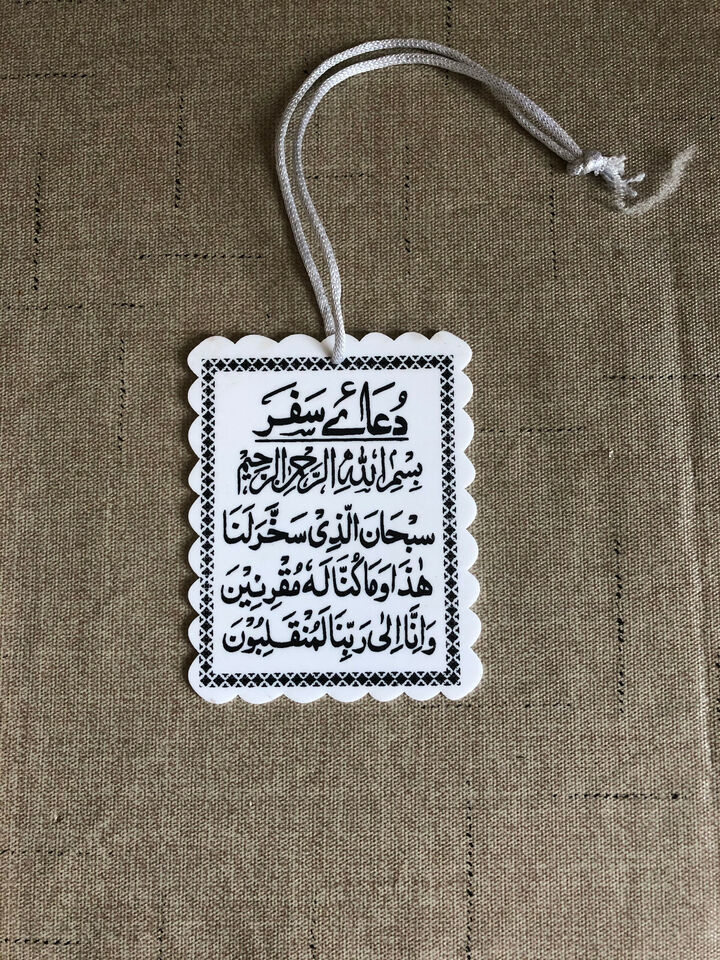 دُعَائے سَفَر
بِسْمِ اللهِ الرَّحْمٰنِ الرَّحِيْمِ
سبْحَانَ الَّذِىْ سَخَّرَ لَنَا
هٰذَا وَمَا كُنَّا لَهٗ مُقْرِنِيْنَ
وَاِنَّا اِلٰى رَبِّنَا لَمُنْقَلِبُوْنَ